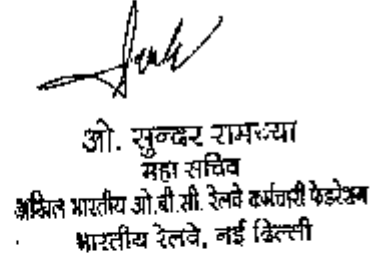 ओ. सुन्दर रामय्या
महा सचिव
अखिल भारतीय ओ.बी.सी. रेलवे कर्मचारी फेडरेशन
भारतीय रेलवे, नई दिल्ली